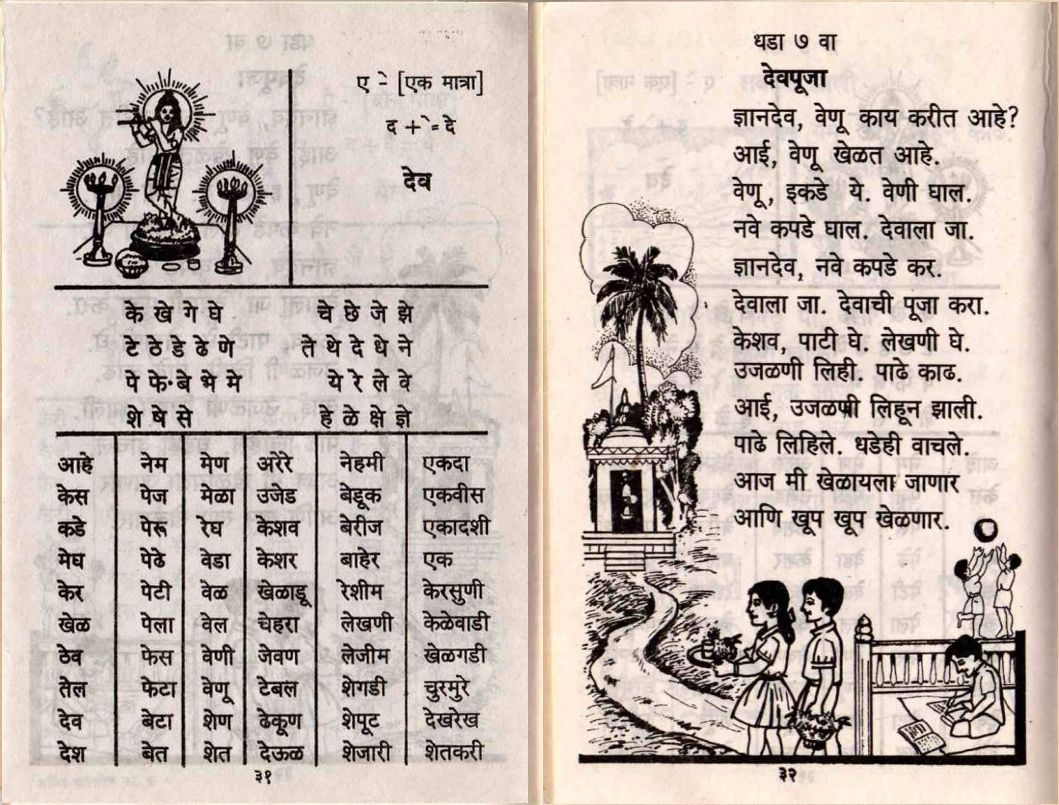 ए े [एक मात्रा]
द + े = दे
देव
के खे गे घे चे छे जे झे
टे ठे डे ढे णे ते थे दे धे ने
पे फे बे भे मे ये रे ले वे
शे षे से हे ळे क्षे ज्ञे
आहे नेम मेण अरेरे नेहमी एकदा
केस पेज मेळा उजेड बेडूक एकवीस
कडे पेरू रेघ केशव बेरीज एकादशी
मेघ पेढे वेडा केशर बाहेर एक
केर पेटी वेळ खेळाडू रेशीम केरसुणी
खेळ पेला वेल चेहरा लेखणी केळेवाडी
ठेव फेस वेणी जेवण लेजीम खेळगडी
तेल फेटा वेणू टेबल शेगडी चुरमुरे
देव बेटा शेण ढेकूण शेपूट देखरेख
देश बेत शेत देऊळ शेजारी शेतकरी
३१
धडा ७ वा
देवपूजा
ज्ञानदेव, वेणू काय करीत आहे?
आई, वेणू खेळत आहे.
वेणू, इकडे ये. वेणी घाल.
नवे कपडे घाल. देवाला जा.
ज्ञानदेव, नवे कपडे कर.
देवाला जा. देवाची पूजा करा.
केशव, पाटी घे. लेखणी घे.
उजळणी लिही. पाढे काढ.
आई, उजळणी लिहून झाली.
पाढे लिहिले. धडेही वाचले.
आज मी खेळायला जाणार
आणि खूप खूप खेळणार.
३२